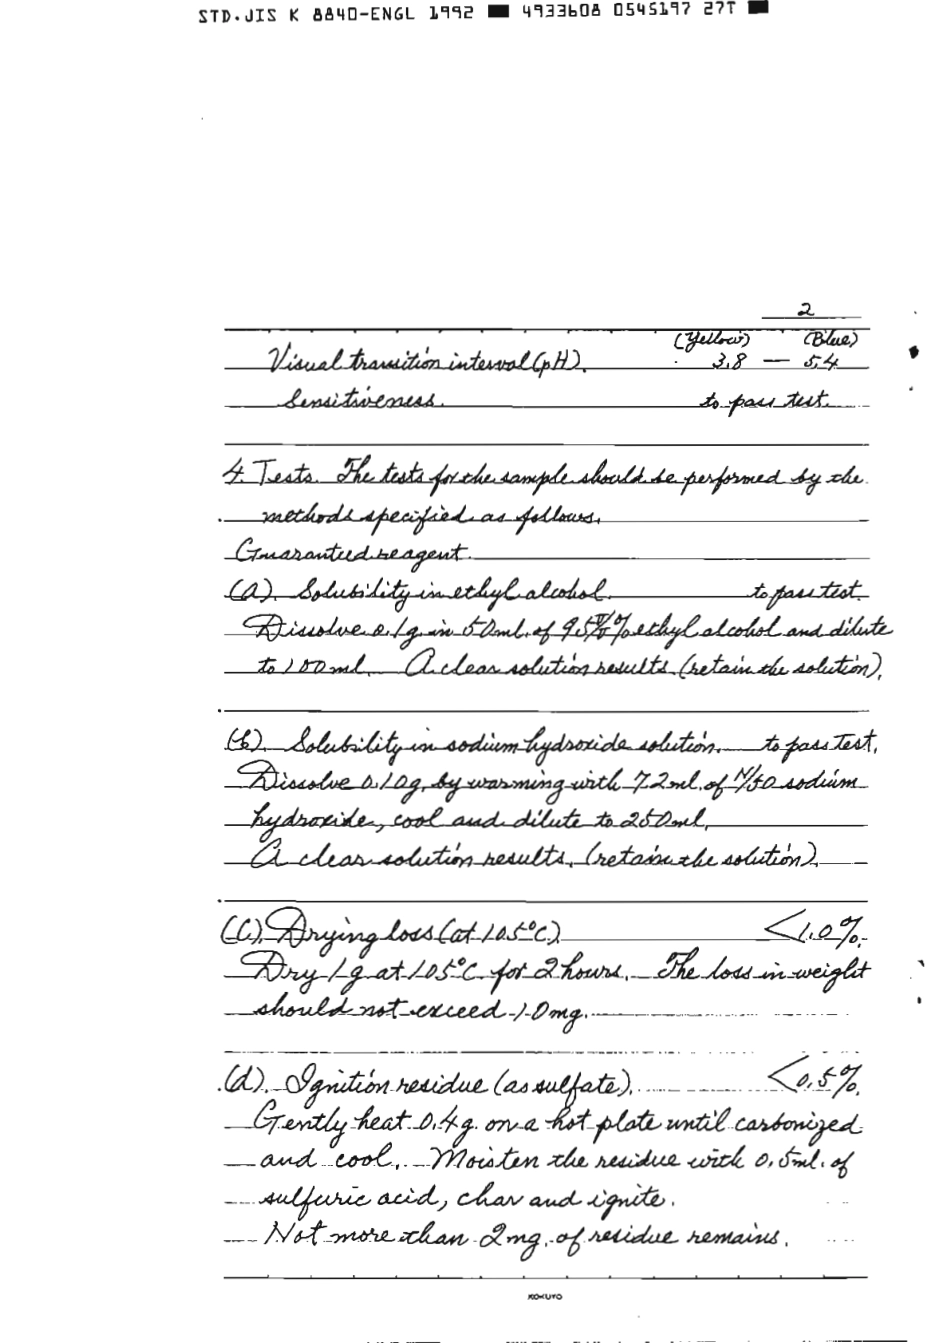 STD.JIS K 8840-ENGL 1992 ■ 4933608 0545197 27T ■
2
(Yellow) (Blue)
Visual transition interval (pH). 3.8 — 5.4
Sensitiveness. to pass test.
4. Tests. The tests for the sample should be performed by the
methods specified as follows.
Guaranteed reagent
(a). Solubility in ethyl alcohol. to pass test.
Dissolve 0.1g in 50ml. of 95 V/V% ethyl alcohol and dilute
to 100ml. A clear solution results. (retain the solution).
(b). Solubility in sodium hydroxide solution. to pass test.
Dissolve 0.10g, by warming with 7.2ml. of N/50 sodium
hydroxide, cool and dilute to 250ml.
A clear solution results. (retain the solution).
(C). Drying loss (at 105°C) <1.0%.
Dry 1g at 105°C for 2 hours. The loss in weight
should not exceed 10mg.
(d). Ignition residue (as sulfate). <0.5%.
Gently heat 0.4g. on a hot plate until carbonized
and cool. Moisten the residue with 0.5ml. of
sulfuric acid, char and ignite.
Not more than 2mg. of residue remains.
KOKUYO